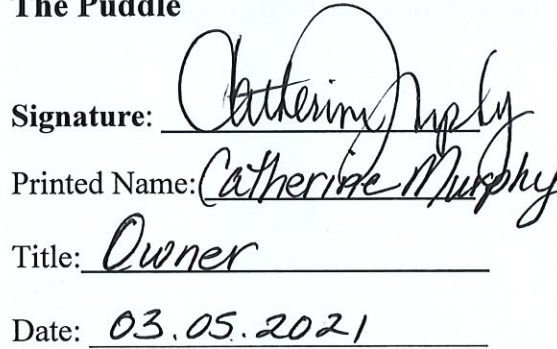 The Puddle
Signature: Catherine Murphy
Printed Name: Catherine Murphy
Title: Owner
Date: 03.05.2021